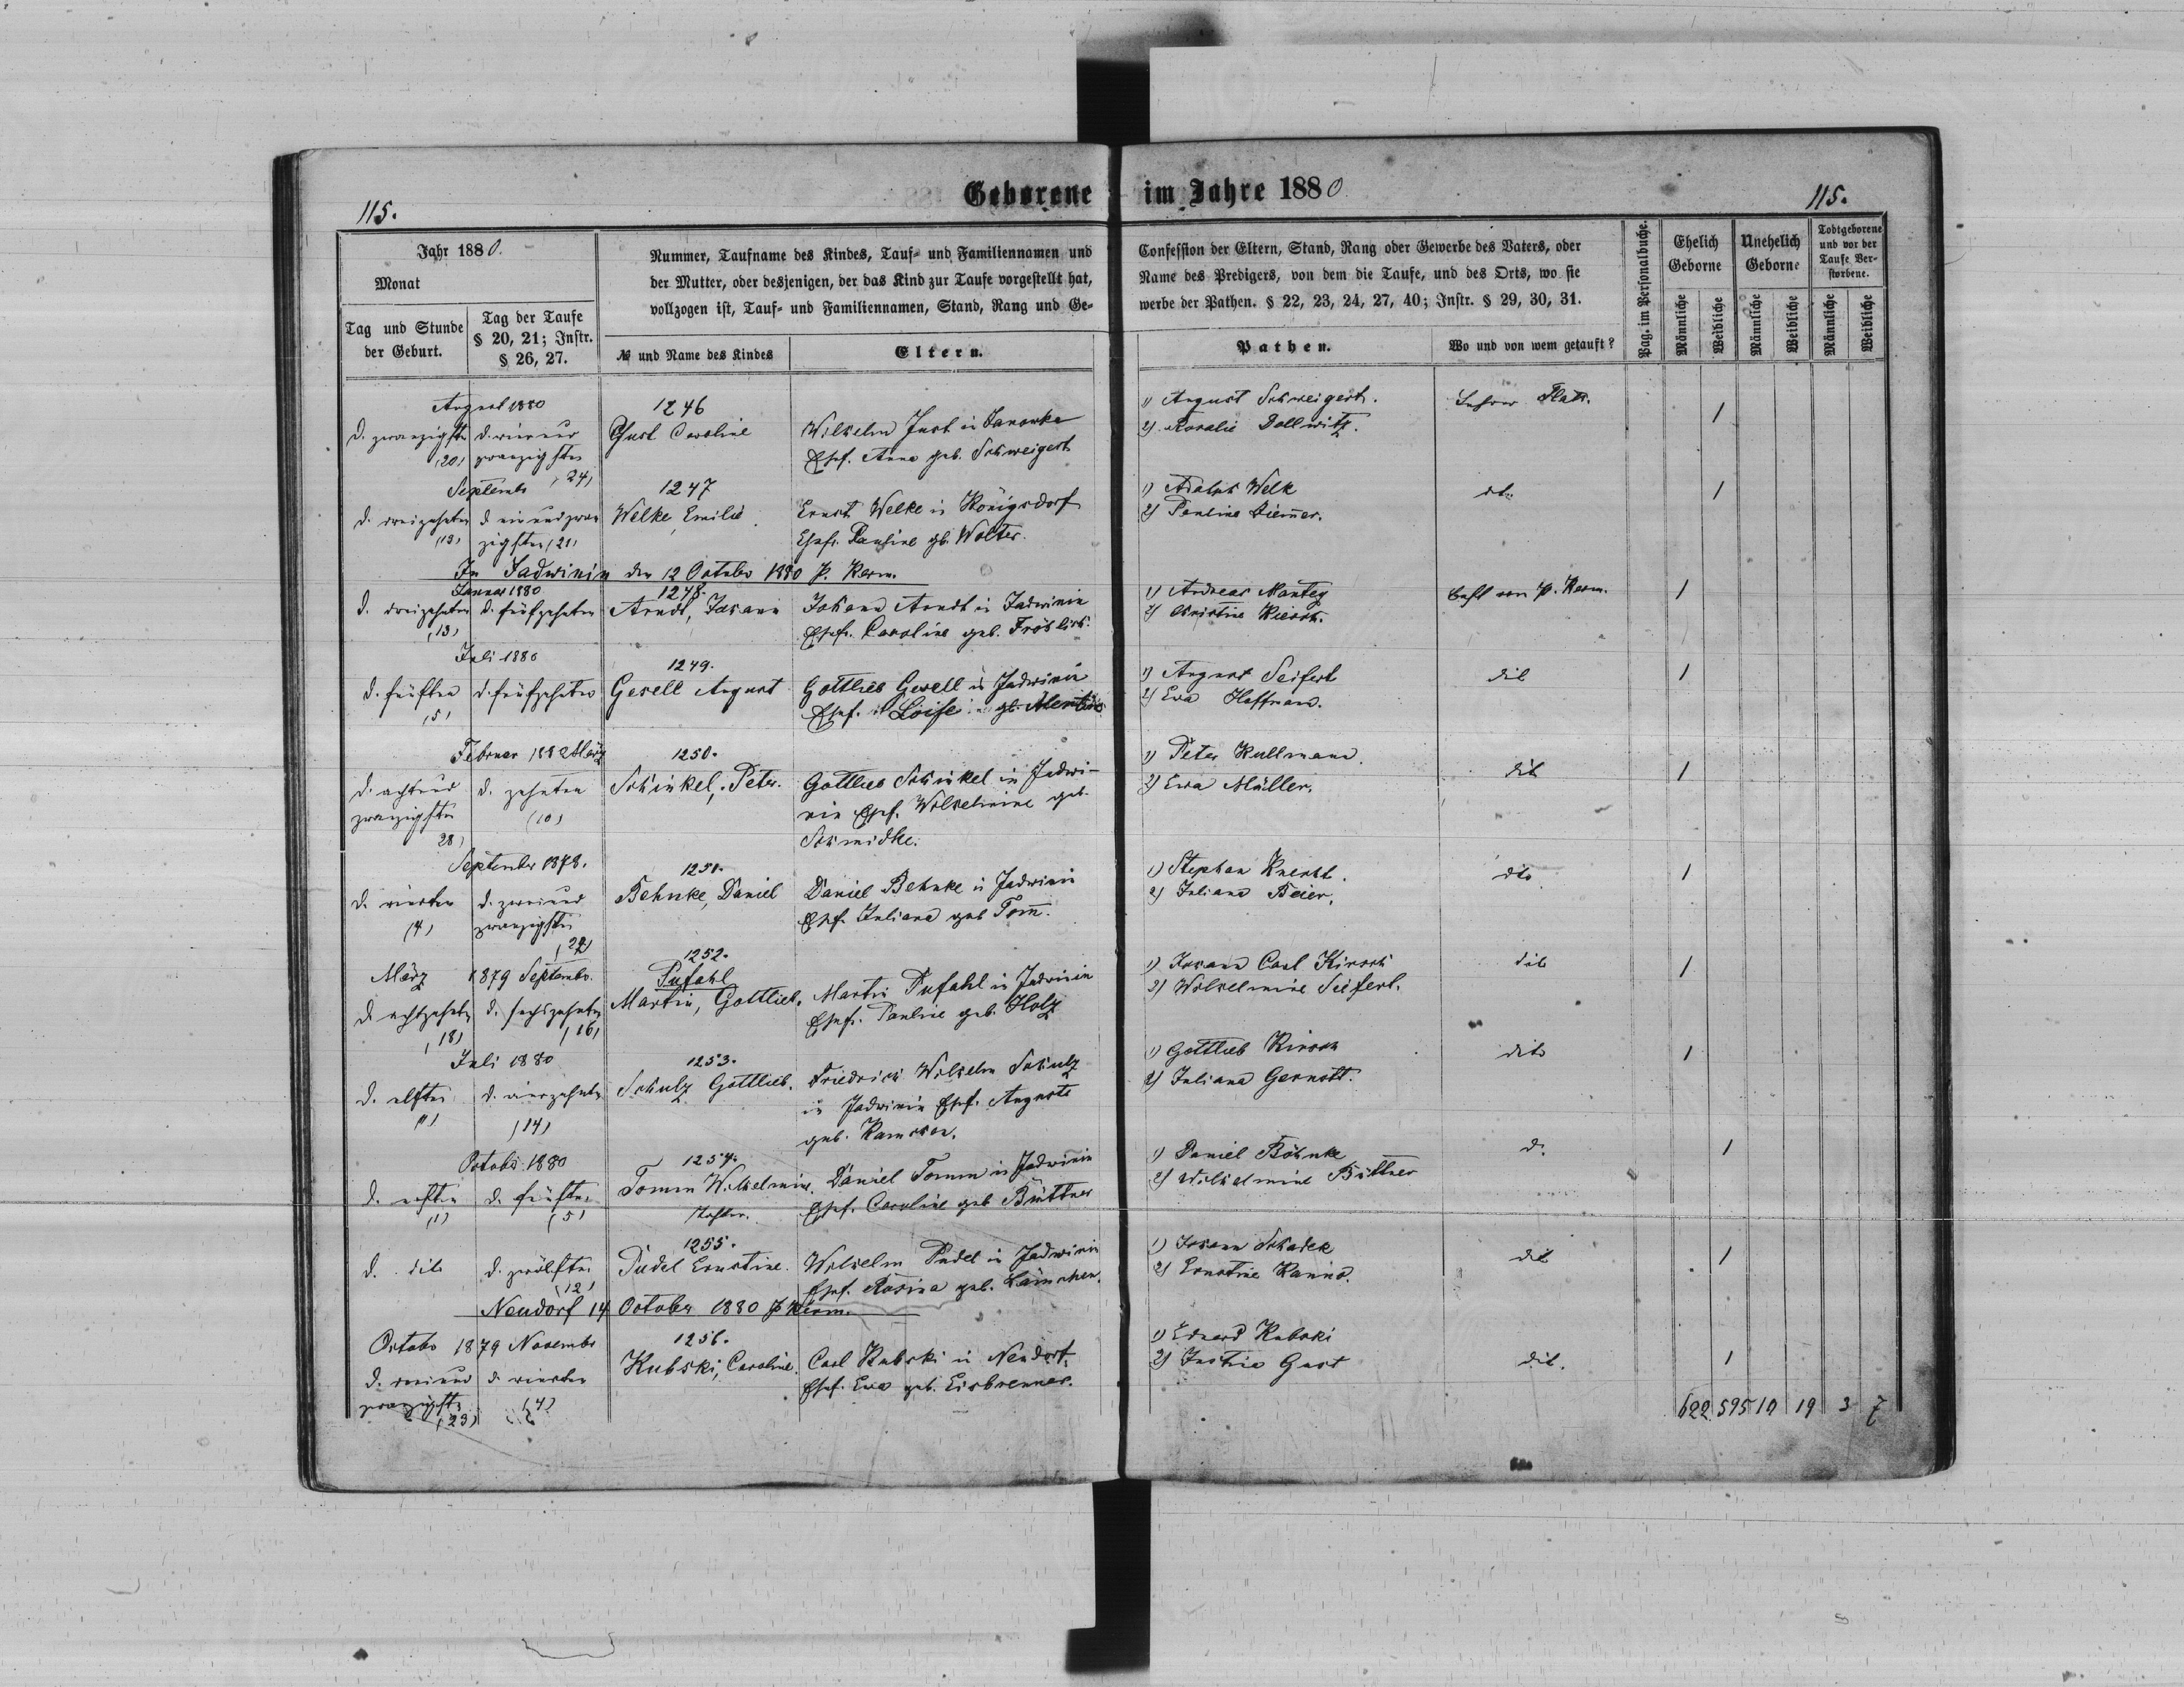 Geborene im Jahre 1880
115.
115.
Jahr 1880.
Monat
Tag und Stunde der Geburt.
Tag der Taufe § 20, 21; Instr. § 26, 27.
Nummer, Taufname des Kindes, Tauf= und Familiennamen und
der Mutter, oder desjenigen, der das Kind zur Taufe vorgestellt hat,
vollzogen ist, Tauf= und Familiennamen, Stand, Rang und Ge=
№ und Name des Kindes
Eltern.
Confession der Eltern, Stand, Rang oder Gewerbe des Vaters, oder
Name des Predigers, von dem die Taufe, und des Orts, wo sie
werbe der Pathen. § 22, 23, 24, 27, 40; Instr. § 29, 30, 31.
Pathen.
Wo und von wem getauft?
Pag. im Personalbuche.
Ehelich Geborne
Unehelich Geborne
Todtgeborene und vor der Taufe Verstorbene.
Männliche
Weibliche
Männliche
Weibliche
Männliche
Weibliche
August 1880
1246
d. zwanzigsten (20)
d. vierund zwanzigsten (24)
Just Caroline
Wilhelm Just in Janowka
Ehef. Anna geb. Schweigert
1) August Schweigert.
2) Rosalie Dollwitz.
1
Septembr
1247
d. dreizehnten (13)
d. einundzwanzigsten (21)
Welke, Emilie
Ernst Welke in Königsdorf
Ehefr. Pauline gb. Wolter.
1) Adolph Welk
2) Pauline Ziem̄er.
dto
1
In Jadwinin den 12 October 1880 P. Kerm.
Januar 1880
1248.
d. dreizehnten (13)
d. fünfzehnten
Arndt, Johann
Johann Arndt in Jadwinin
Ehefr. Caroline geb. Fröhlich.
1) Andreas Manteg
2) Christine Kirsch.
von P. Kerm.
1
Juli 1880
1249.
d. fünften (5)
d. fünfzehnten
Gesell August
Gottlieb Gesell in Jadwinin
Ehef. Loise gb.
1) August Seifert
2) Ewa Hoffmann.
dit
1
Februar 1880 März
1250.
d. achtund zwanzigsten 28)
d. zehnten (10)
Schinkel, Peter.
Gottlieb Schinkel in Jadwi-
nin Ehef. Wilhelmine geb.
Schmidtke.
1) Peter Kullmann.
2) Ewa Müller.
dit
1
September 1878.
1251.
d. vierten (4)
d. zweiund zwanzigsten (22)
Behnke, Daniel
Daniel Behnke in Jadwinin
Ehef. Juliana geb Tom̄.
1) Stephan Knecht.
2) Juliana Beier.
dto
1
März 1879 Septembr.
1252.
d. achtzehnten (18)
d. sechszehnten (16)
Pufahl
Martin, Gottlieb.
Martin Pufahl in Jadwinin
Ehefr. Pauline geb. Holz
1) Johann Carl Kirsch
2) Wilhelmine Seifert.
dito
1
Juli 1880
1253.
d. elften 11)
d. vierzehnten (14)
Schulz Gottlieb.
Friedrich Wilhelm Schulz
in Jadwinin Ehef. Auguste
geb.
1) Gottlieb Kirsch
2) Juliana Gernott.
dito
1
Octobr. 1880
1254.
d. ersten (1)
d. fünften (5)
Tomm Wilhelmine.
Daniel Tomm in Jadwinin
Ehef. Caroline geb Büttner
1) Daniel Böhnke
2) Wilhelmine Büttner
d.
1
1255.
d. dito
d. zwölften (12)
Pudel Ernstine.
Wilhelm Pudel in Jadwinin
Ehef. Rosina geb. Lämchen.
1) Johann Schadek
2) Ernstine Kanina.
dit
1
Neudorf 14 October 1880 P Kerm.
Octobr 1879 Novembr
1256.
d. dreiund zwanzigst. (23)
d. vierten (4)
Kubski, Caroline.
Carl Kubski in Neudorf,
Ehef. Ewa geb. Eisbrenner.
1) Eduard Kubski
2) Justine Gust
dit.
1
622 595 10 19 3 7